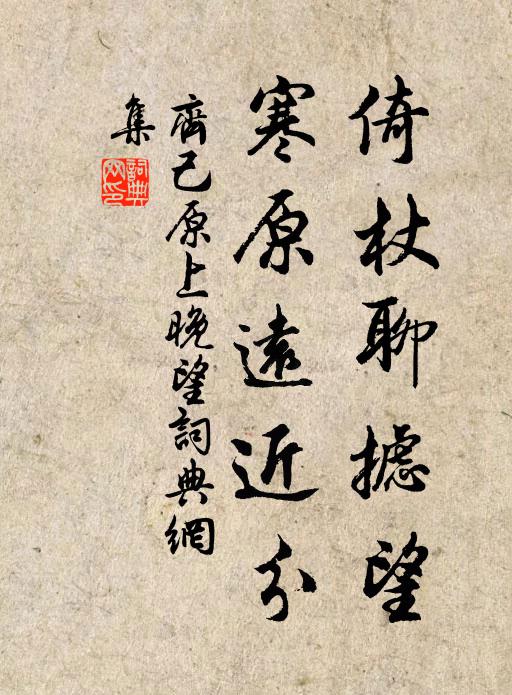 倚杖聊攄望
寒原遠近分
齊己原上晚望詞典網
集
詞典網印